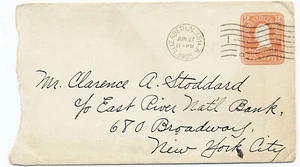 2 2
Mr. Clarence A. Stoddard
c/o East River Nat'l Bank,
680 Broadway,
New York City